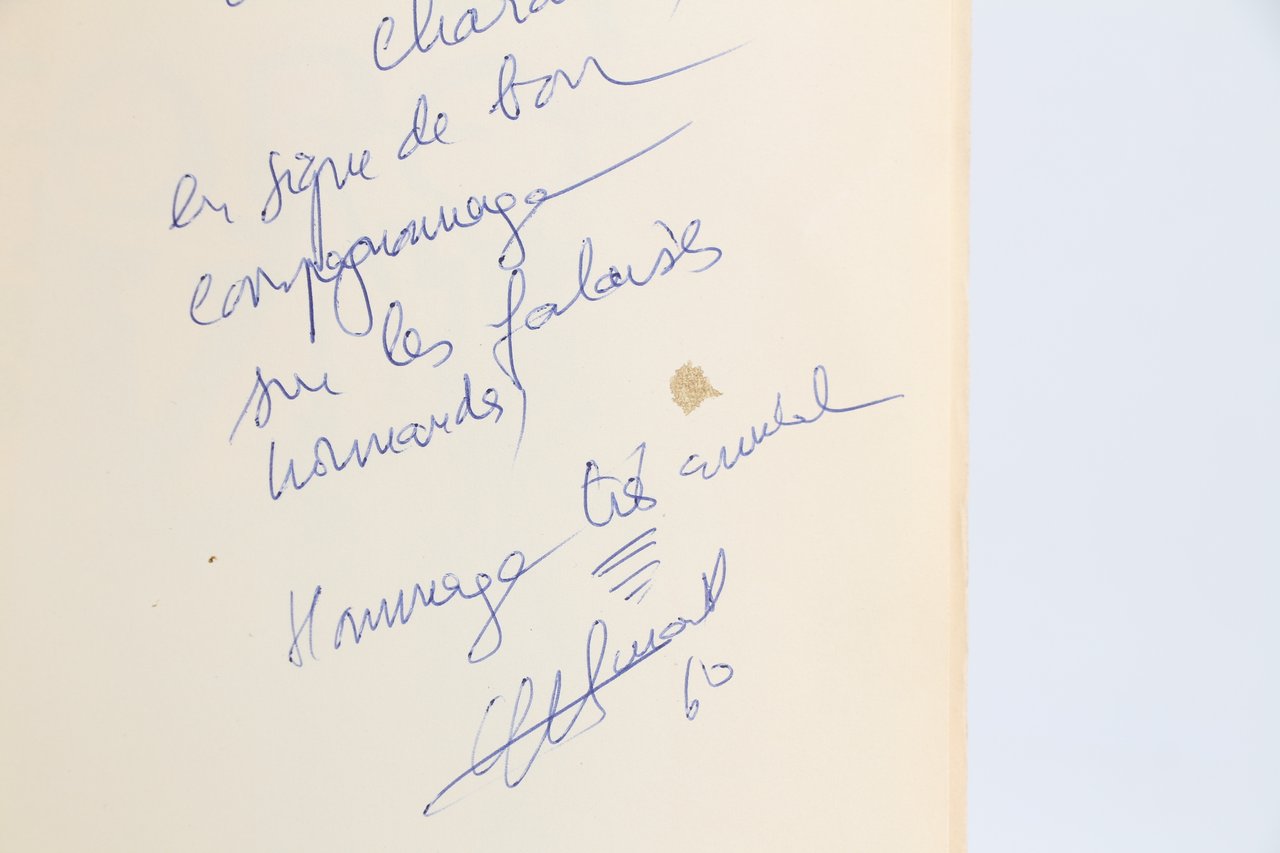 en signe de bon
compagnonnage
sur les falaises
normandes,
Hommage très amical
60